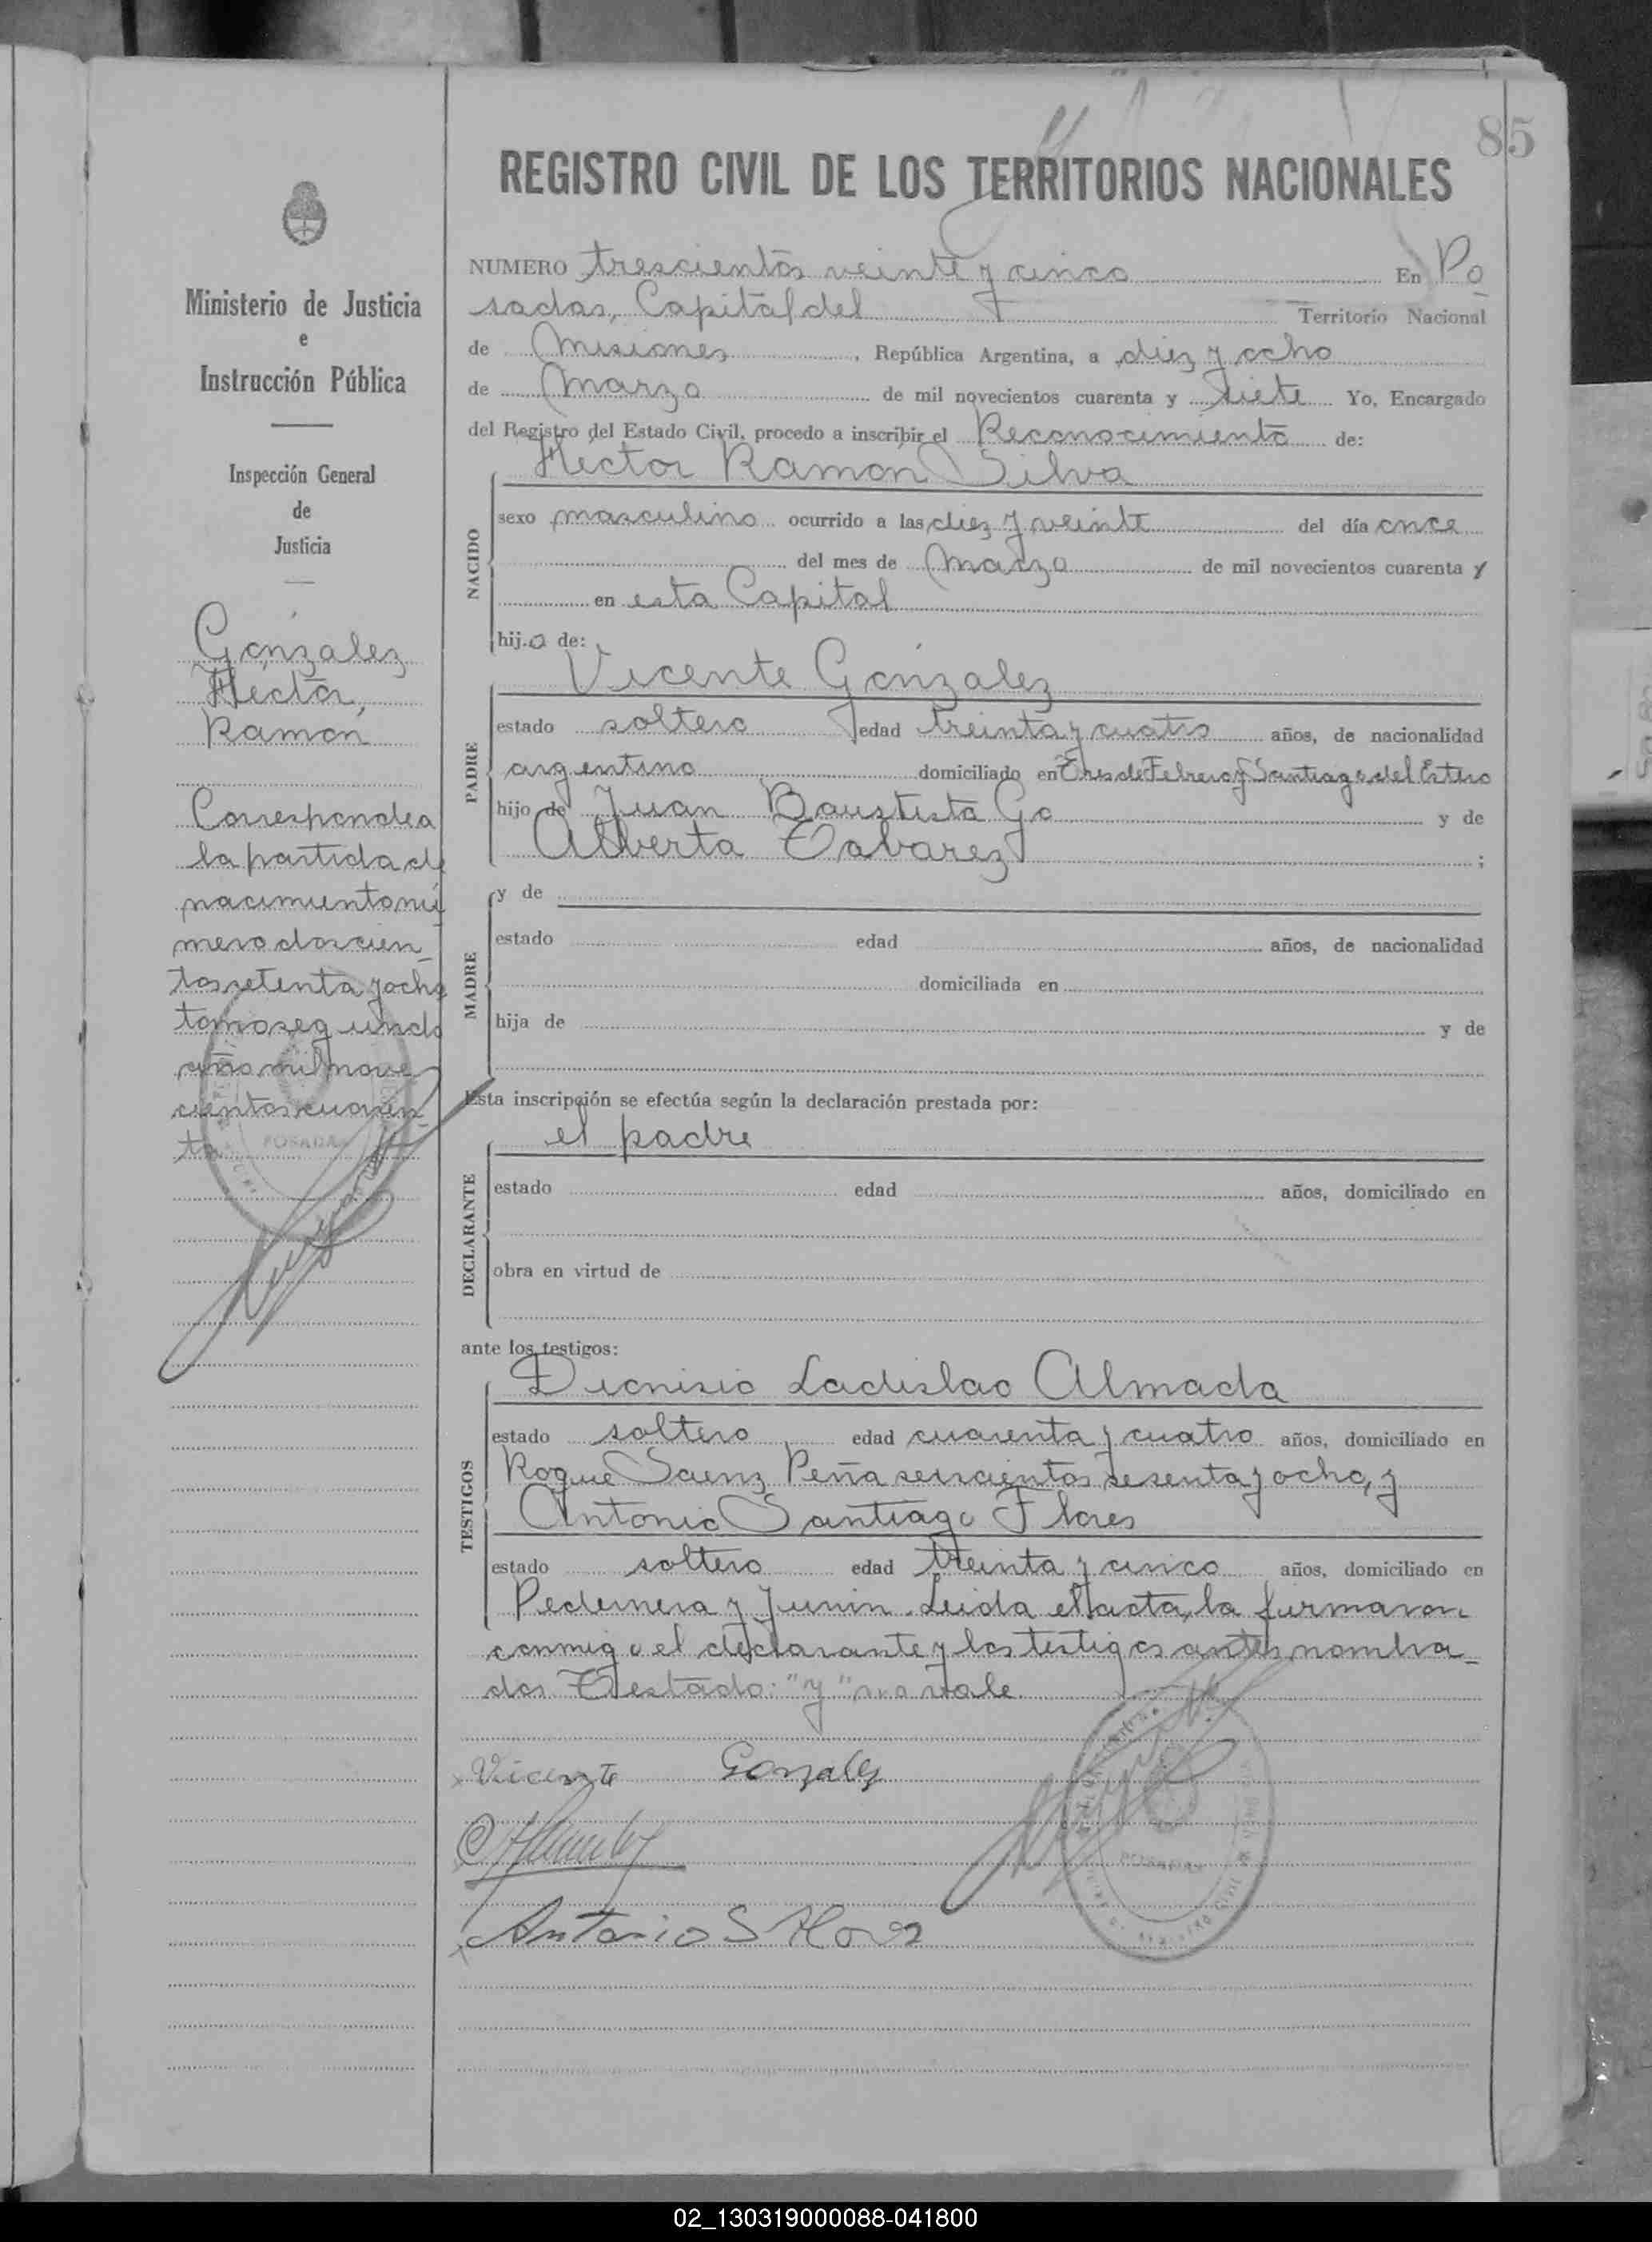 85
REGISTRO CIVIL DE LOS TERRITORIOS NACIONALES
Ministerio de Justicia
e
Instrucción Pública
Inspección General
de
Justicia
Gonzalez
Hector,
Ramon
Corresponde a
la partida de
nacimiento nú
mero doscien_
tos setenta y ocho
tomo segundo
año mil nove
cientos cuaren_
ta
POSADAS
NUMERO trescientos veinte y cinco En Po
sadas, Capital del Territorio Nacional
de Misiones, República Argentina, a diez y ocho
de Marzo de mil novecientos cuarenta y siete Yo, Encargado
del Registro del Estado Civil, procedo a inscribir el Reconocimiento de:
Hector Ramon Silva
NACIDO
sexo masculino ocurrido a las diez y veinte del día once
del mes de Marzo de mil novecientos cuarenta y
en esta Capital
hijo de:
Vicente Gonzalez
PADRE
estado soltero edad treinta y cuatro años, de nacionalidad
argentino domiciliado en Tres de Febrero y Santiago del Estero
hijo de Juan Bautista Go y de
Alberta Tabarez ;
MADRE
y de
estado edad años, de nacionalidad
domiciliada en
hija de y de
Esta inscripción se efectúa según la declaración prestada por:
el padre
DECLARANTE
estado edad años, domiciliado en
obra en virtud de
ante los testigos:
Dionisio Ladislao Almada
TESTIGOS
estado soltero edad cuarenta y cuatro años, domiciliado en
Roque Saenz Peña seiscientos sesenta y ocho, y
Antonio Santiago Flores
estado soltero edad treinta y cinco años, domiciliado en
Pedernera y Junin. Leida el acta, la firmaron
conmigo el declarante y los testigos antes nombra_
dos Testado: "y" no vale
Vicente Gonzalez
Antonio S Flores
POSADAS
02_130319000088-041800